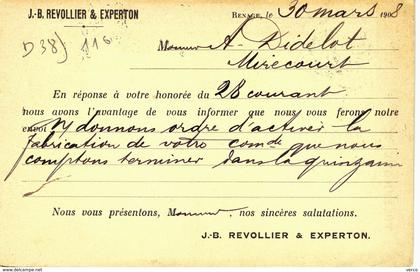 J.-B. REVOLLIER & EXPERTON
RENAGE, le 30 mars 1908
D38) 116
Monsieur A. Didelot
Mirecourt
En réponse à votre honorée du 28 courant
nous avons l'avantage de vous informer que nous vous ferons notre
envoi ny donnons ordre d'activer la
fabrication de votre comde que nous
comptons terminer dans la quinzaine
Nous vous présentons, Monsieur, nos sincères salutations.
J.-B. REVOLLIER & EXPERTON.